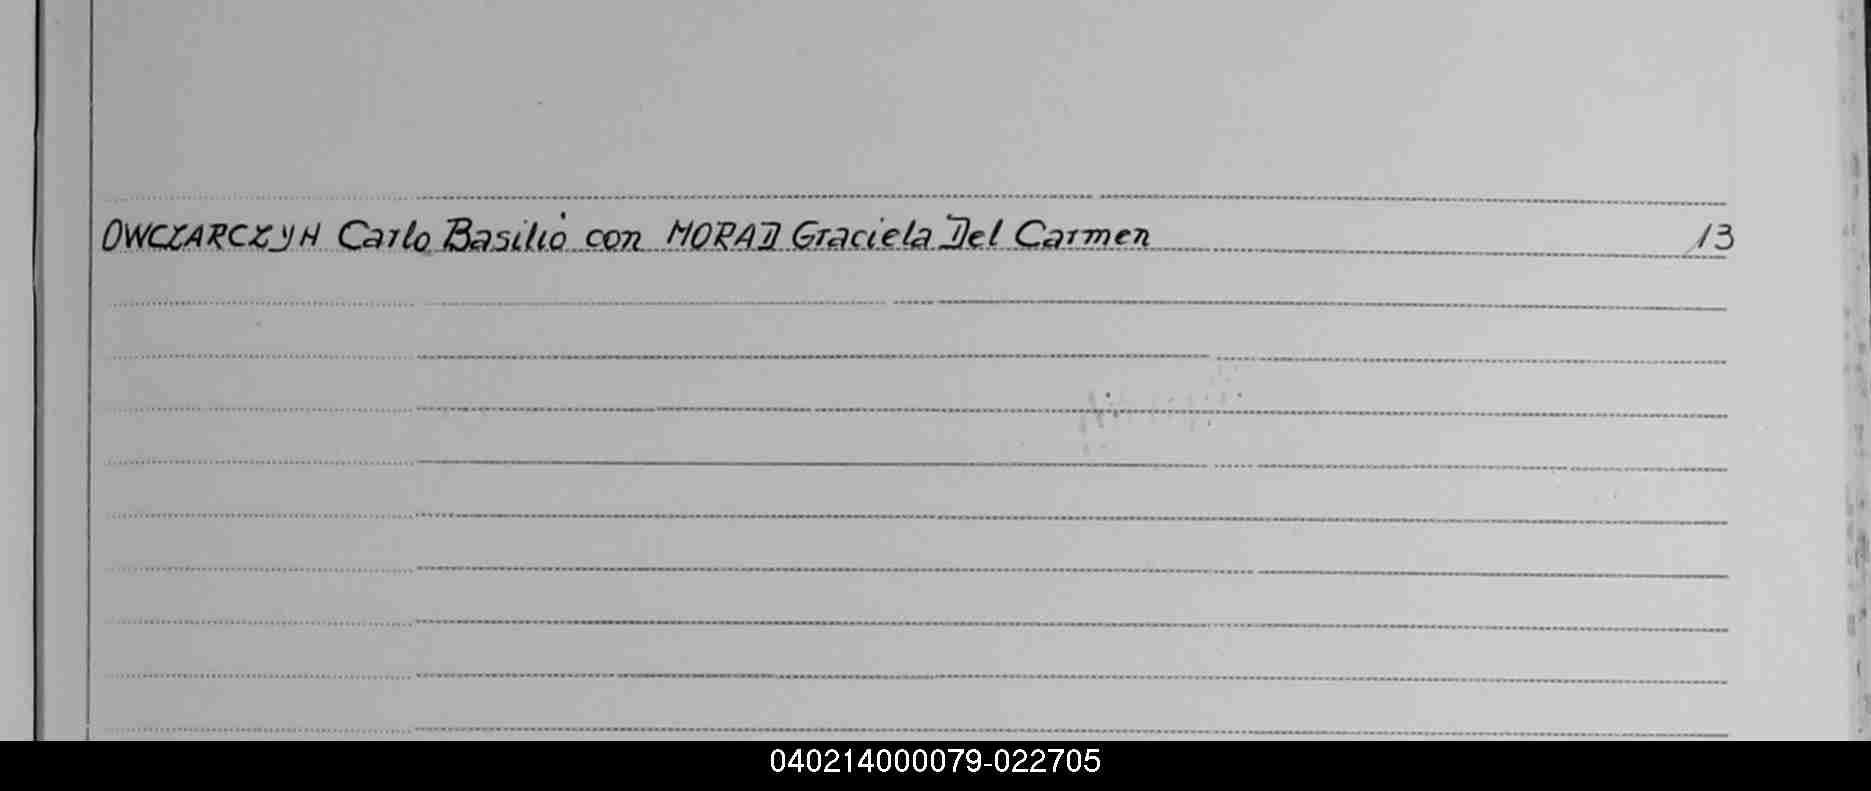 OWCZARCZYN Carlo Basilio con MORAD Graciela Del Carmen 13
040214000079-022705